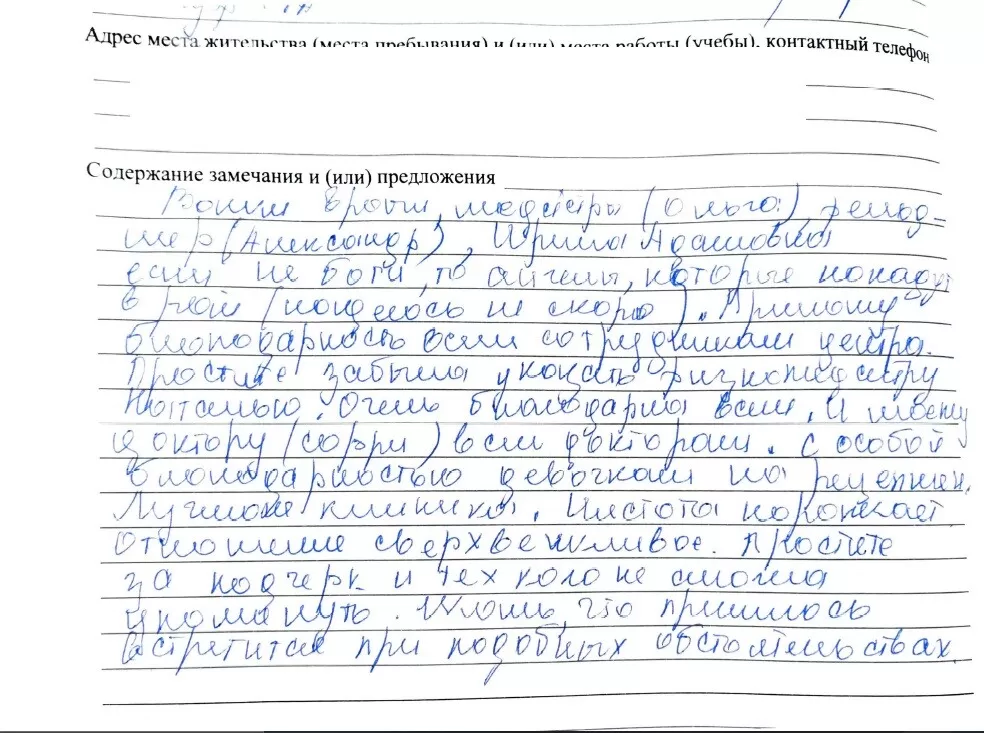 Адрес места жительства (места пребывания) и (или) места работы (учебы), контактный телефон
Содержание замечания и (или) предложения
Ваши врачи, медсестры (Ольга), фельд-
шер (Александр), Ирина Адамовна
если не боги, то ангелы, которые попадут
в рай (надеюсь не скоро). Приношу
благодарность всем сотрудникам центра.
Простите забыла указать физиомедсестру
Наталью. Очень благодарна всем. И моему
доктору (сорри) всем докторам. С особой
благодарностью девочкам на рецепшен.
Лучшая клиника. Чистота поражает
Отношение сверхвежливое. Простите
за подчерк и тех кого не смогла
упомануть. Жаль, что пришлось
встретится при подобных обстоятельствах.